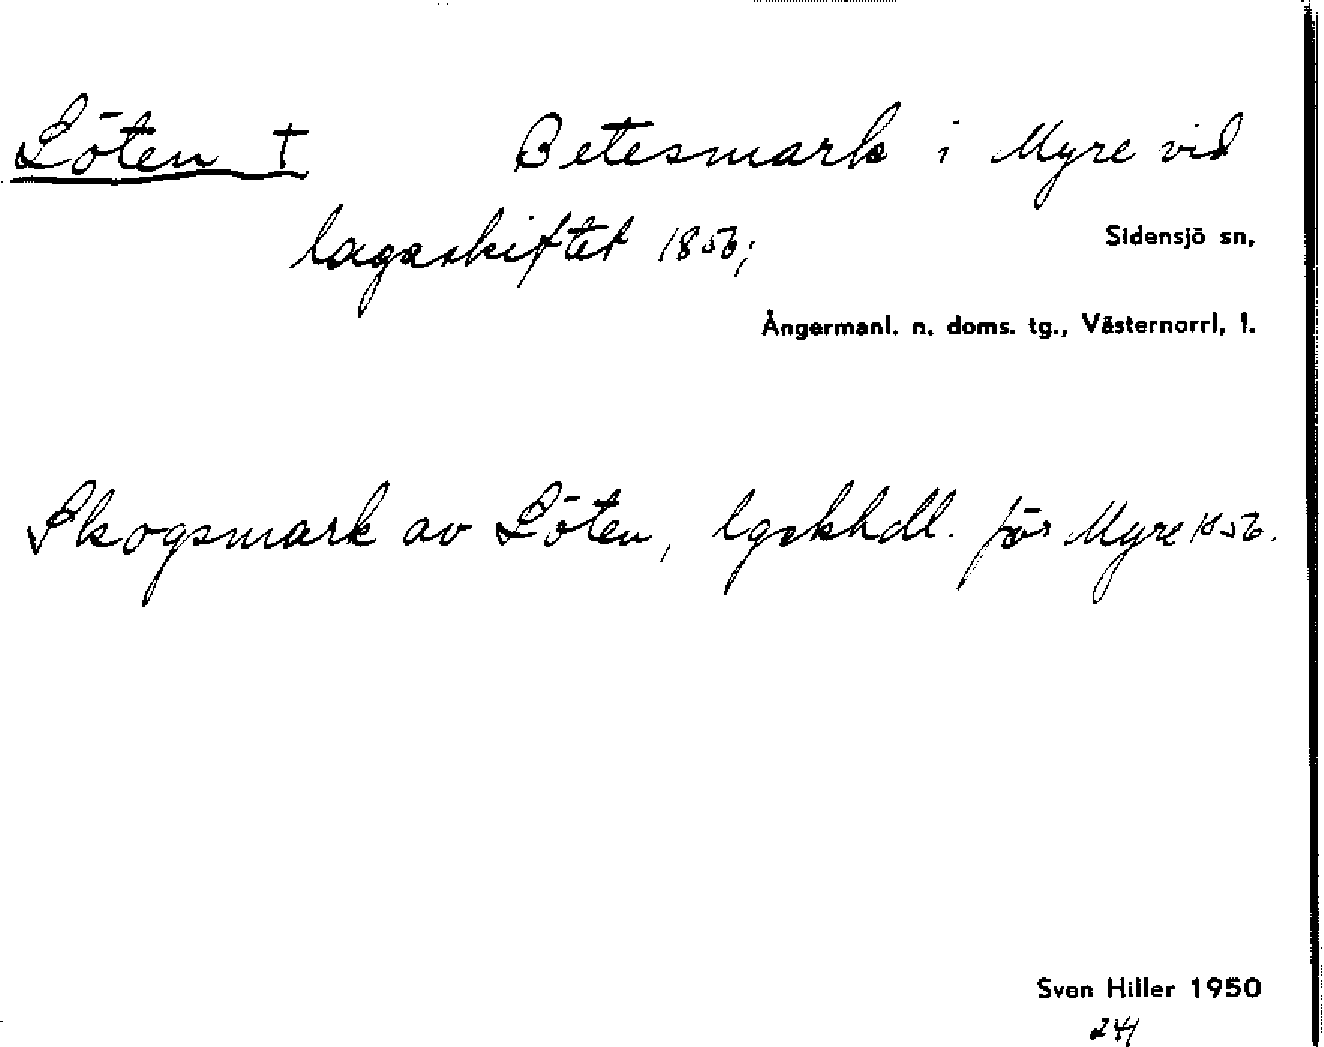 Löten †
Betesmark i Myre vid
lagaskiftet 1856;
Sidensjö sn,
Ångermanl. n. doms. tg., Västernorrl. l.
Skogsmark av Löten, lgskhdl. för Myre 1856.
Sven Hiller 1950
241